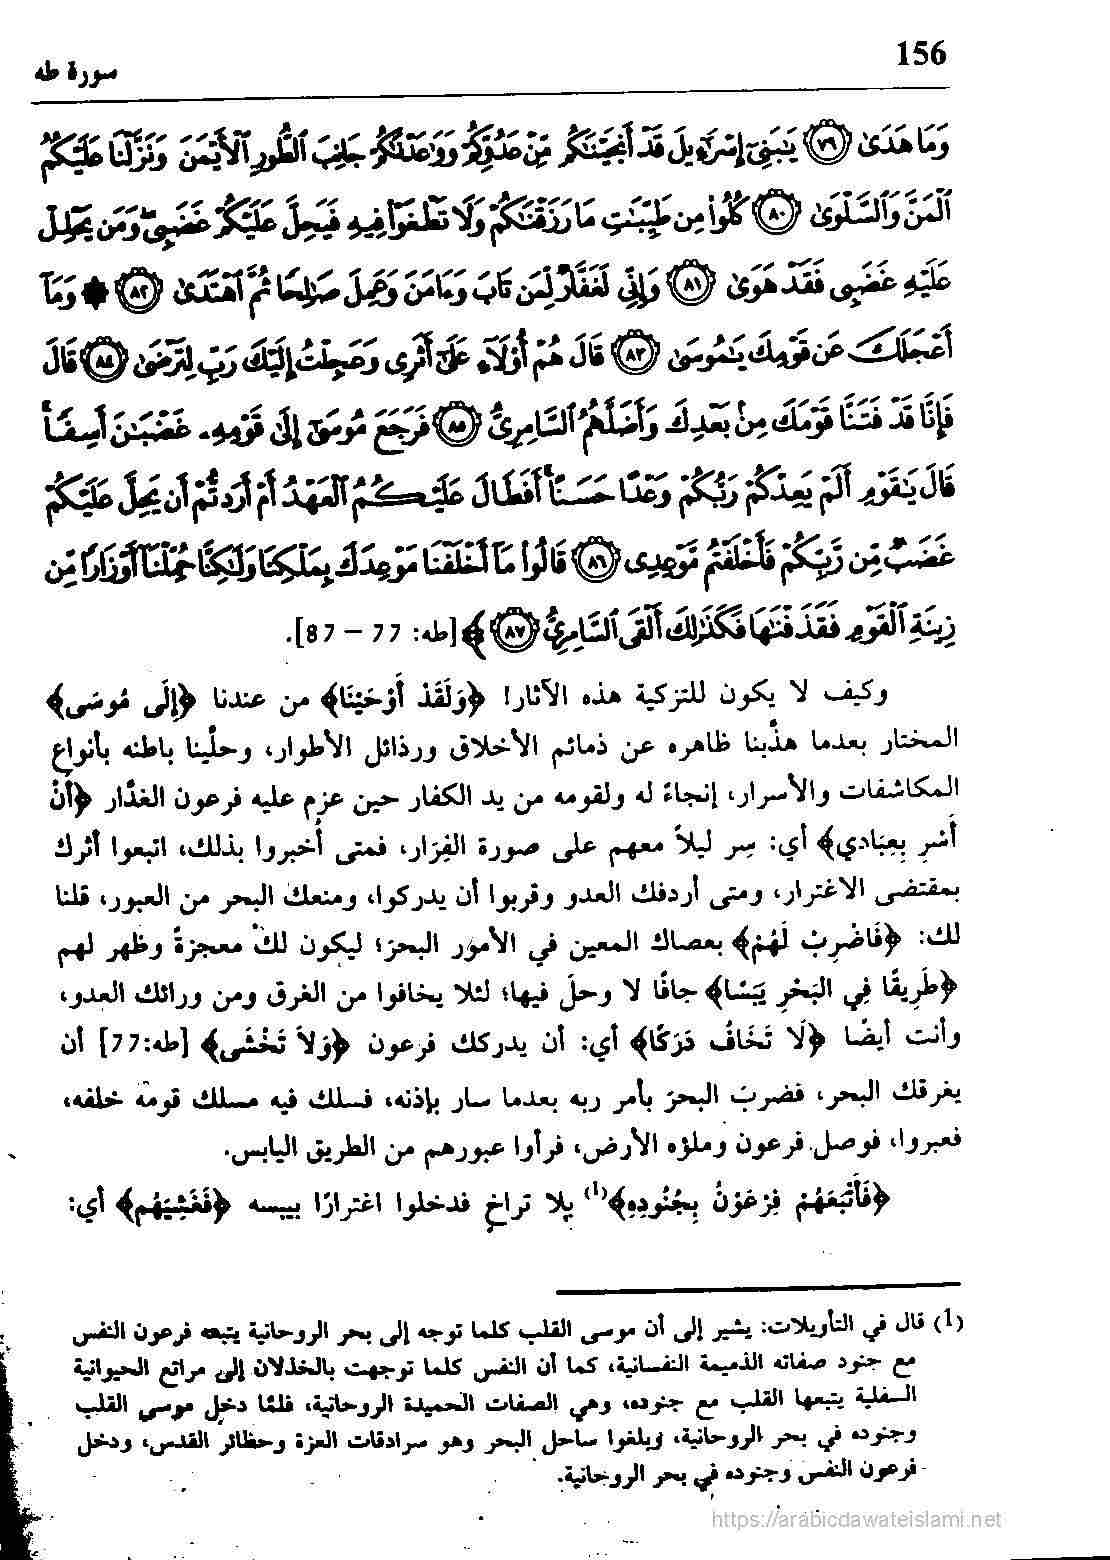 156
سورة طه
وَمَا هَدَىٰ ﴿٧٩﴾ يَٰبَنِىٓ إِسْرَٰٓءِيلَ قَدْ أَنجَيْنَٰكُم مِّنْ عَدُوِّكُمْ وَوَٰعَدْنَٰكُمْ جَانِبَ ٱلطُّورِ ٱلْأَيْمَنَ وَنَزَّلْنَا عَلَيْكُمُ
ٱلْمَنَّ وَٱلسَّلْوَىٰ ﴿٨٠﴾ كُلُوا۟ مِن طَيِّبَٰتِ مَا رَزَقْنَٰكُمْ وَلَا تَطْغَوْا۟ فِيهِ فَيَحِلَّ عَلَيْكُمْ غَضَبِى وَمَن يَحْلِلْ
عَلَيْهِ غَضَبِى فَقَدْ هَوَىٰ ﴿٨١﴾ وَإِنِّى لَغَفَّارٌ لِّمَن تَابَ وَءَامَنَ وَعَمِلَ صَٰلِحًا ثُمَّ ٱهْتَدَىٰ ﴿٨٢﴾ ۞ وَمَآ
أَعْجَلَكَ عَن قَوْمِكَ يَٰمُوسَىٰ ﴿٨٣﴾ قَالَ هُمْ أُو۟لَآءِ عَلَىٰٓ أَثَرِى وَعَجِلْتُ إِلَيْكَ رَبِّ لِتَرْضَىٰ ﴿٨٤﴾ قَالَ
فَإِنَّا قَدْ فَتَنَّا قَوْمَكَ مِنۢ بَعْدِكَ وَأَضَلَّهُمُ ٱلسَّامِرِىُّ ﴿٨٥﴾ فَرَجَعَ مُوسَىٰٓ إِلَىٰ قَوْمِهِۦ غَضْبَٰنَ أَسِفًا
قَالَ يَٰقَوْمِ أَلَمْ يَعِدْكُمْ رَبُّكُمْ وَعْدًا حَسَنًا أَفَطَالَ عَلَيْكُمُ ٱلْعَهْدُ أَمْ أَرَدتُّمْ أَن يَحِلَّ عَلَيْكُمْ
غَضَبٌ مِّن رَّبِّكُمْ فَأَخْلَفْتُم مَّوْعِدِى ﴿٨٦﴾ قَالُوا۟ مَآ أَخْلَفْنَا مَوْعِدَكَ بِمَلْكِنَا وَلَٰكِنَّا حُمِّلْنَآ أَوْزَارًا مِّن
زِينَةِ ٱلْقَوْمِ فَقَذَفْنَٰهَا فَكَذَٰلِكَ أَلْقَى ٱلسَّامِرِىُّ ﴿٨٧﴾﴾ [طه: 77 – 87].
وكيف لا يكون للتزكية هذه الآثار! ﴿وَلَقَدْ أَوْحَيْنَا﴾ من عندنا ﴿إِلَى مُوسَى﴾
المختار بعدما هذَّبنا ظاهره عن ذمائم الأخلاق ورذائل الأطوار، وحلَّينا باطنه بأنواع
المكاشفات والأسرار، إنجاءً له ولقومه من يد الكفار حين عزم عليه فرعون الغدَّار ﴿أَنْ
أَسْرِ بِعِبَادِي﴾ أي: سِر ليلاً معهم على صورة الفِرَار، فمتى أُخبروا بذلك، اتبعوا أثرك
بمقتضى الاغترار، ومتى أردفك العدو وقربوا أن يدركوا، ومنعك البحر من العبور، قلنا
لك: ﴿فَاضْرِبْ لَهُمْ﴾ بعصاك المعين في الأمور البحرَ؛ ليكون لك معجزةً وظهر لهم
﴿طَرِيقًا فِي البَحْرِ يَبَسًا﴾ جافًا لا وحلَ فيها؛ لئلا يخافوا من الغرق ومن ورائك العدو،
وأنت أيضًا ﴿لَا تَخَافُ دَرَكًا﴾ أي: أن يدركك فرعون ﴿وَلاَ تَخْشَى﴾ [طه:77] أن
يغرقك البحر، فضربَ البحرَ بأمر ربه بعدما سار بإذنه، فسلك فيه مسلك قومه خلفه،
فعبروا، فوصل فرعون وملؤه الأرض، فرأوا عبورهم من الطريق اليابس.
﴿فَأَتْبَعَهُمْ فِرْعَوْنُ بِجُنُودِهِ﴾(1) بلا تراخٍ فدخلوا اغترارًا بيبسه ﴿فَغَشِيَهُم﴾ أي:
(1) قال في التأويلات: يشير إلى أن موسى القلب كلما توجه إلى بحر الروحانية يتبعه فرعون النفس
مع جنود صفاته الذميمة النفسانية، كما أن النفس كلما توجهت بالخذلان إلى مراتع الحيوانية
السفلية يتبعها القلب مع جنوده، وهي الصفات الحميدة الروحانية، فلمَّا دخل موسى القلب
وجنوده في بحر الروحانية، وبلغوا ساحل البحر وهو سرادقات العزة وحظائر القدس، ودخل
فرعون النفس وجنوده في بحر الروحانية.
https://arabicdawateislami.net